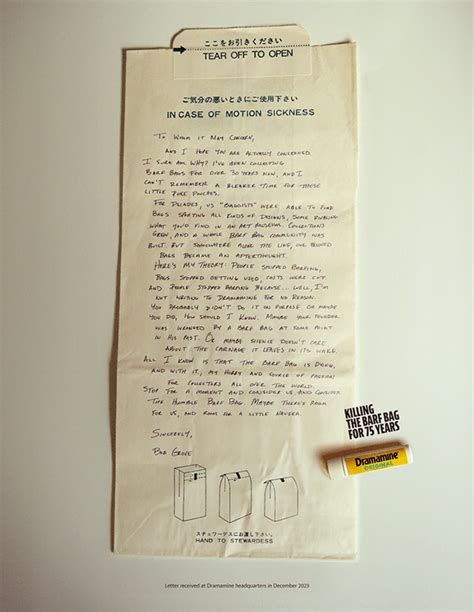 ここをお引きください
TEAR OFF TO OPEN
ご気分の悪いときにご使用下さい
IN CASE OF MOTION SICKNESS
To Whom It May Concern,
And I hope you are actually concerned.
I sure am. Why? I've been collecting
barf bags for over 30 years now, and I
can't remember a bleaker time for these
little puke pouches.
For decades, us "baggists" were able to find
bags sporting all kinds of designs, some rivaling
what you'd find in an art museum. Collections
grew, and a whole barf bag community was
built. But somewhere along the line, our beloved
bags became an afterthought.
Here's my theory: People stopped barfing,
bags stopped getting used, costs were cut.
And people stopped barfing because... well, I'm
not writing to Dramamine for no reason.
You probably didn't do it on purpose or maybe
you did, how should I know. Maybe your founder
was wronged by a barf bag at some point
in his past. Or maybe science doesn't care
about the carnage it leaves in its wake.
All I know is that the barf bag is dying,
and with it, my hobby and source of passion
for collectors all over the world.
Stop for a moment and consider us, and consider
the humble barf bag. Maybe there's room
for us, and room for a little nausea.
Sincerely,
Bob Grove
KILLING
THE BARF BAG
FOR 75 YEARS
Dramamine
ORIGINAL
スチュワーデスにお渡し下さい。
HAND TO STEWARDESS
Letter received at Dramamine headquarters in December 2023